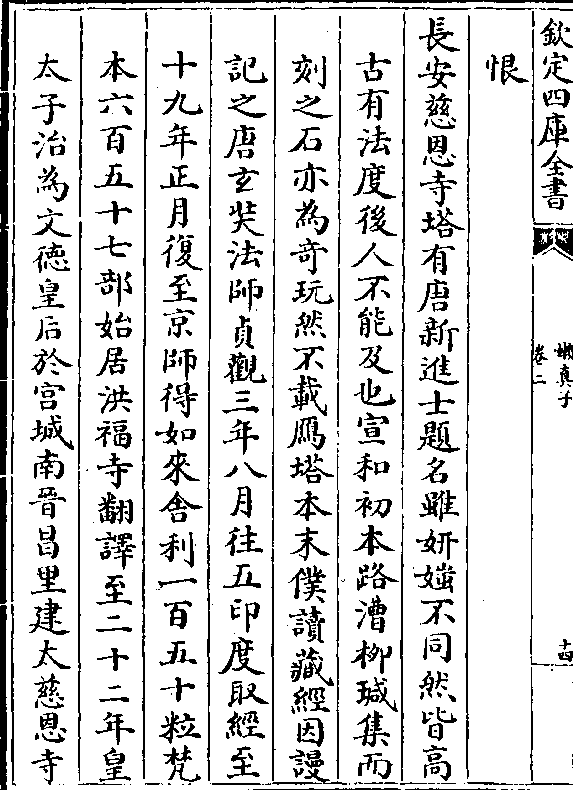 欽定四庫全書
嬾真子
卷二
十四
恨
長安慈恩寺塔有唐新進士題名雖妍媸不同然皆高
古有法度後人不能及也宣和初本路漕柳瑊集而
刻之石亦為奇玩然不載鴈塔本末僕讀藏經因謾
記之唐玄奘法師貞觀三年八月往五印度取經至
十九年正月復至京師得如來舍利一百五十粒梵
本六百五十七部始居洪福寺翻譯至二十二年皇
太子治為文德皇后於宮城南晉昌里建太慈恩寺